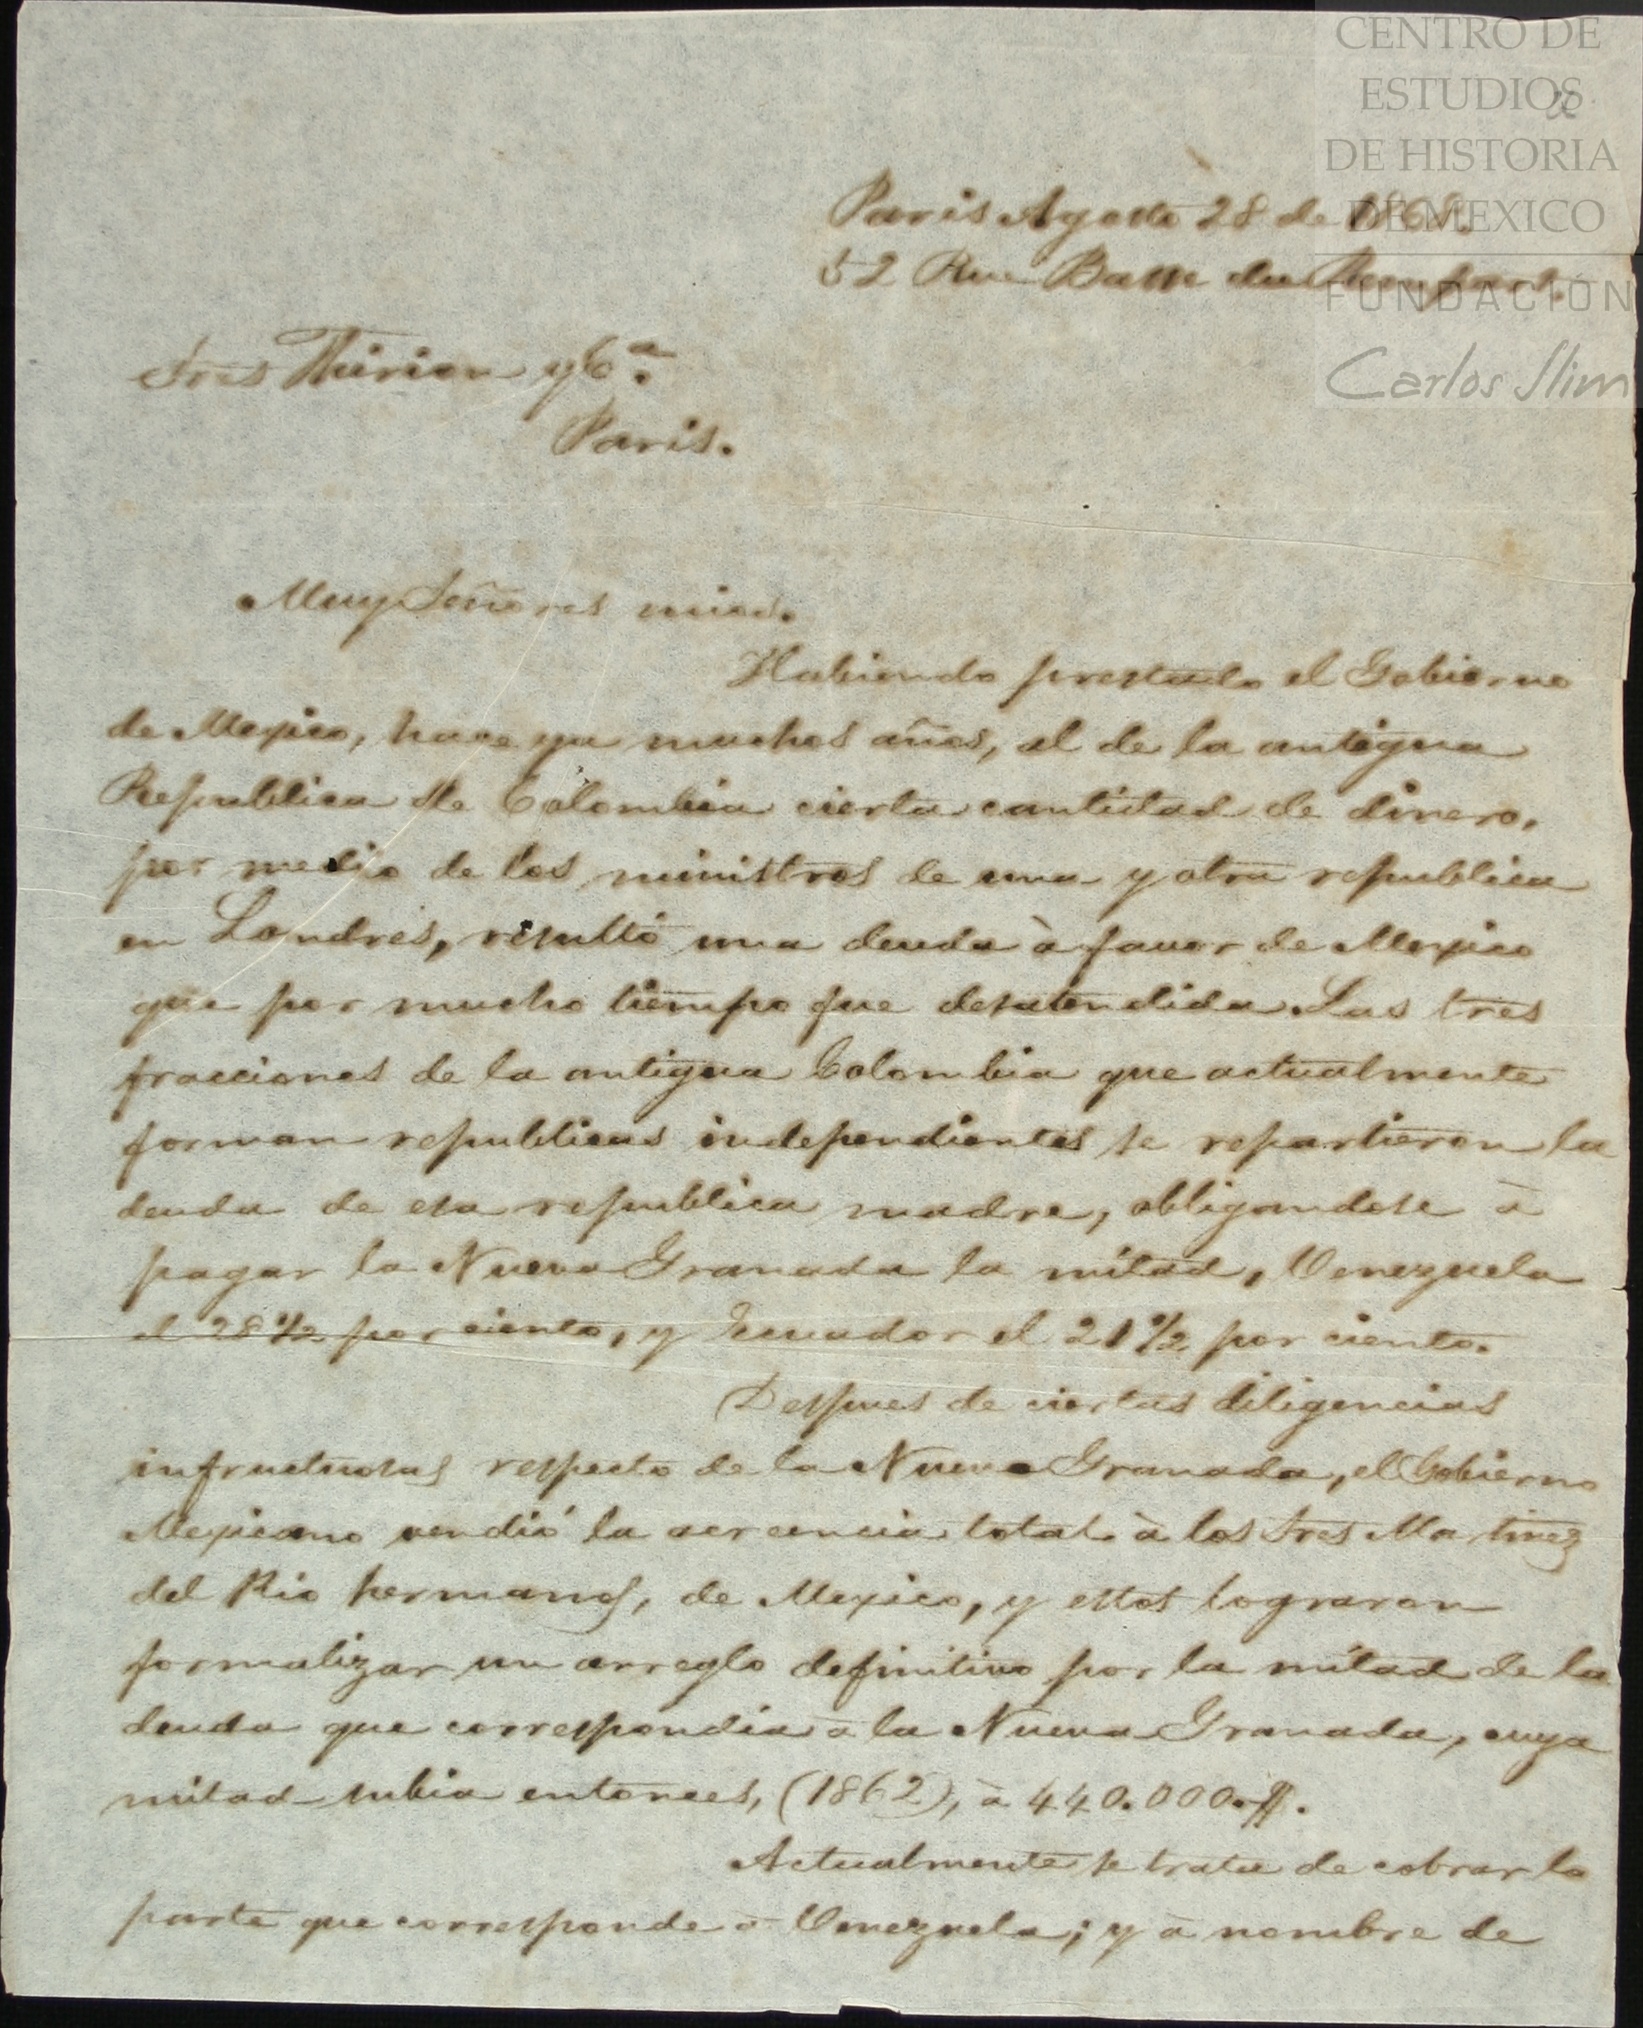 CENTRO DE
ESTUDIOS
DE HISTORIA
DE MEXICO
FUNDACIÓN
Carlos Slim
Paris Agosto 28 de
52 Rue Basse du Rempart.
Sres Thirion y Cª.
Paris.
Muy Señores mios.
Habiendo prestado el Gobierno
de Mexico, hace ya muchos años, al de la antigua
Republica de Colombia cierta cantidad de dinero,
por medio de los ministros de una y otra republica
en Londres, resultó una deuda à favor de Mexico
que por mucho tiempo fue desatendida. Las tres
fracciones de la antigua Colombia que actualmente
forman republicas independientes se repartieron la
deuda de esa republica madre, obligandose à
pagar la Nueva Granada la mitad, Venezuela
el 28 1/2 por ciento, y Ecuador el 21 1/2 por ciento.
Despues de ciertas diligencias
infructuosas respecto de la Nueva Granada, el Gobierno
Mexicano vendió la acrencia total à los Sres Martinez
del Rio hermanos, de Mexico, y estos lograron
formalizar un arreglo definitivo por la mitad de la
deuda que correspondia à la Nueva Granada, cuya
mitad subia entonces, (1862), à 440.000.$.
Actualmente se trata de cobrar la
parte que corresponde à Venezuela; y à nombre de